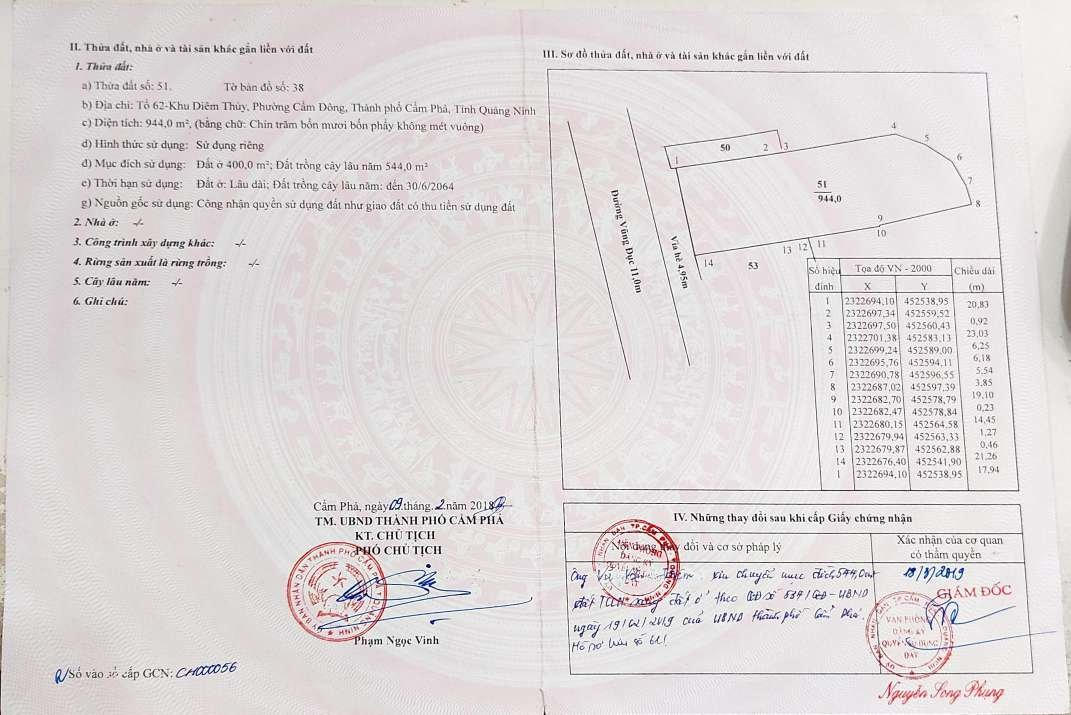 II. Thửa đất, nhà ở và tài sản khác gắn liền với đất
1. Thửa đất:
a) Thửa đất số: 51. Tờ bản đồ số: 38
b) Địa chỉ: Tổ 62-Khu Diêm Thủy, Phường Cẩm Đông, Thành phố Cẩm Phả, Tỉnh Quảng Ninh
c) Diện tích: 944,0 m², (bằng chữ: Chín trăm bốn mươi bốn phẩy không mét vuông)
d) Hình thức sử dụng: Sử dụng riêng
đ) Mục đích sử dụng: Đất ở 400,0 m²; Đất trồng cây lâu năm 544,0 m²
e) Thời hạn sử dụng: Đất ở: Lâu dài; Đất trồng cây lâu năm: đến 30/6/2064
g) Nguồn gốc sử dụng: Công nhận quyền sử dụng đất như giao đất có thu tiền sử dụng đất
2. Nhà ở: -/-
3. Công trình xây dựng khác: -/-
4. Rừng sản xuất là rừng trồng: -/-
5. Cây lâu năm: -/-
6. Ghi chú:
Cẩm Phả, ngày 09 tháng 2 năm 2018
TM. UBND THÀNH PHỐ CẨM PHẢ
KT. CHỦ TỊCH
PHÓ CHỦ TỊCH
Phạm Ngọc Vinh
Số vào sổ cấp GCN: CH000056
III. Sơ đồ thửa đất, nhà ở và tài sản khác gắn liền với đất
4
5
50 2 3
6
1
7
51
944,0
8
9
10
Đường Vũng Đục 11,0m
Vỉa hè 4,95m
13 12 11
14
53
Số hiệu đỉnh Tọa độ VN - 2000 Chiều dài
X Y (m)
1 2322694,10 452538,95
20,83
2 2322697,34 452559,52
0,92
3 2322697,50 452560,43
23,03
4 2322701,38 452583,13
6,25
5 2322699,24 452589,00
6,18
6 2322695,76 452594,11
5,54
7 2322690,78 452596,55
3,85
8 2322687,02 452597,39
19,10
9 2322682,70 452578,79
0,23
10 2322682,47 452578,84
14,45
11 2322680,15 452564,58
1,27
12 2322679,94 452563,33
0,46
13 2322679,87 452562,88
21,26
14 2322676,40 452541,90
17,94
1 2322694,10 452538,95
IV. Những thay đổi sau khi cấp Giấy chứng nhận
Nội dung thay đổi và cơ sở pháp lý
Xác nhận của cơ quan
có thẩm quyền
Ông Vũ xin chuyển mục đích 544,0m²
đất TCLN sang đất ở theo QĐ số 539/QĐ-UBND
ngày 19/02/2019 của UBND thành phố Cẩm Phả.
Hồ sơ lưu số
GIÁM ĐỐC
VĂN PHÒNG
ĐĂNG KÝ
QUYỀN SỬ DỤNG
ĐẤT
Nguyễn Song Phung